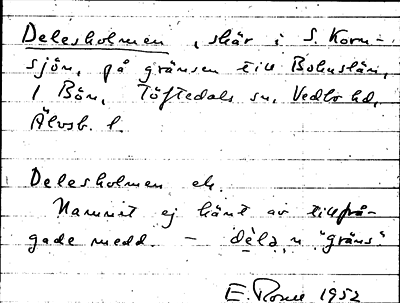 Delesholmen, skär i S. Korn-
sjön, på gränsen till Bohuslän,
1 Bön, Töftedals sn, Vedbo hd,
Älvsb. l.
Delesholmen
Namnet ej känt av tillfrå-
gade medd. — dela, n "gräns"
E. 1952